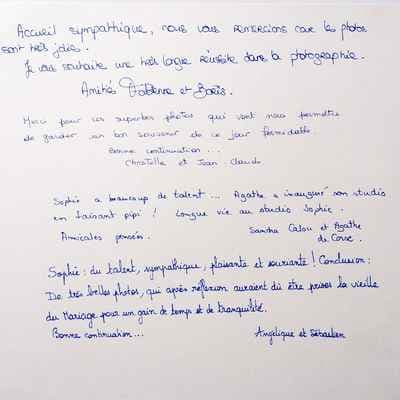 Accueil sympathique, nous vous remercions car les photos
sont très jolies.
Je vous souhaite une très longue réussite dans la photographie.
Amitiés Fabienne et Boris.
Merci pour ces superbes photos qui vont nous permettre
de garder un bon souvenir de ce jour formidable.
Bonne continuation...
Christelle et Jean Claude
Sophie a beaucoup de talent... Agathe a inauguré son studio
en faisant pipi ! Longue vie au studio Sophie.
Amicales pensées.
Sandra Calou et Agathe
de Corse.
Sophie : du talent, sympathique, plaisante et souriante ! Conclusion :
De très belles photos, qui après réflexion auraient dû être prises la vieille
du Mariage pour un gain de temps et de tranquilité.
Bonne continuation...
Angélique et Sébastien